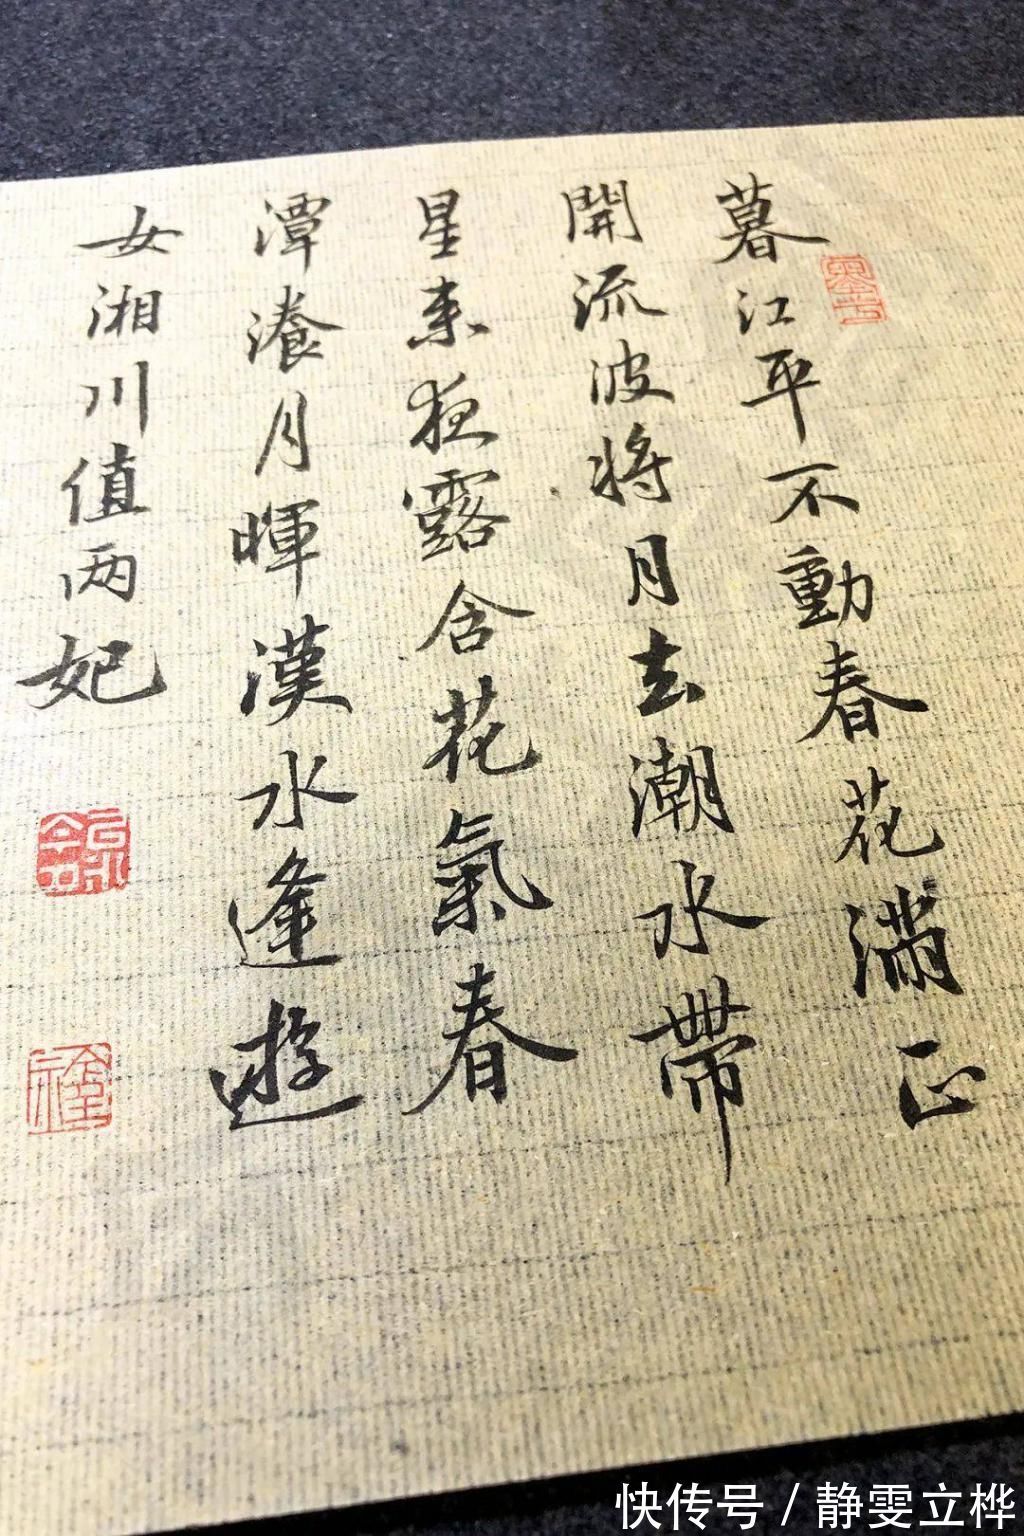 暮江平不動春花滿正
開流波将月去潮水帶
星来夜露含花氣春
潭瀁月暉漢水逢遊
女湘川值两妃
快传号 / 静雯立桦